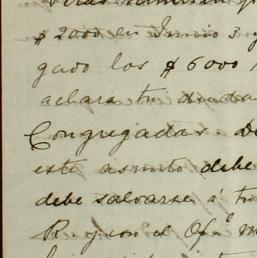 $ 2000 en Junio 3 y
gado los $ 6000
aclara tu duda
Congregadas. De
este asunto debe
debe salvarse á tu
R. y con el Of.º